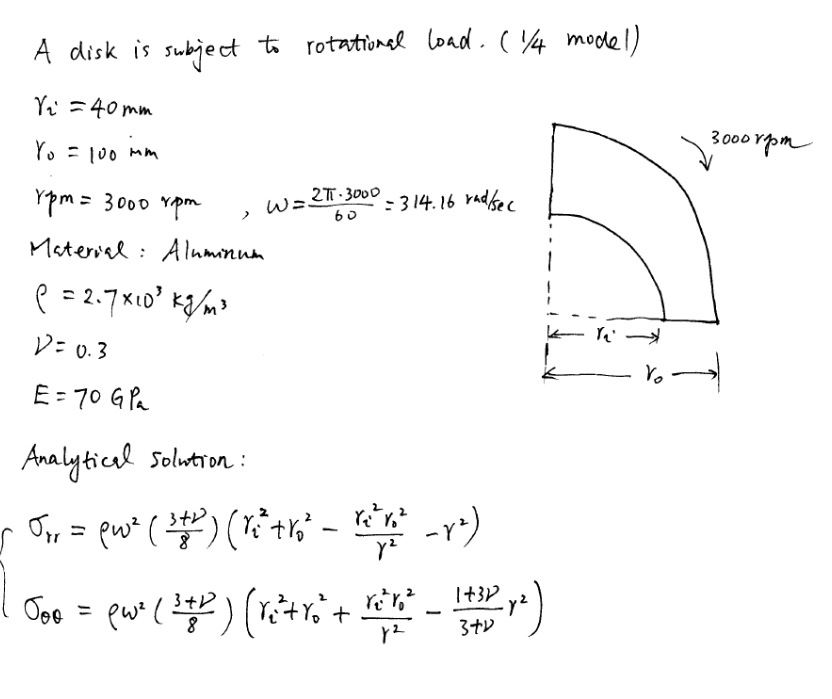 A disk is subject to rotational load. (1/4 model)
r_i = 40 mm
r_o = 100 mm
rpm = 3000 rpm , ω = 2π·3000/60 = 314.16 rad/sec
3000 rpm
Material : Aluminum
ρ = 2.7×10³ kg/m³
ν = 0.3
r_i
E = 70 GPa
r_o
Analytical solution :
σ_rr = ρω² ( (3+ν)/8 ) ( r_i² + r_o² − r_i² r_o² / r² − r² )
σ_θθ = ρω² ( (3+ν)/8 ) ( r_i² + r_o² + r_i² r_o² / r² − (1+3ν)/(3+ν) r² )